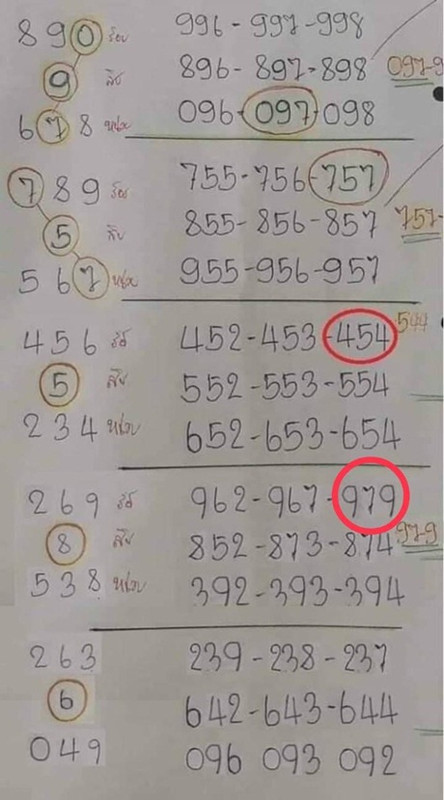 890 ร้อย 996-997-998
9 สิบ 896-897-898 097-9
678 หน่วย 096-097-098
789 ร้อย 755-756-757
5 สิบ 855-856-857 757-
567 หน่วย 955-956-957
456 452-453-454 544
5 สิบ 552-553-554
234 หน่วย 652-653-654
269 962-967-979
8 สิบ 852-873-874 979
538 หน่วย 392-393-394
263 239-238-237
6 642-643-644
049 096 093 092